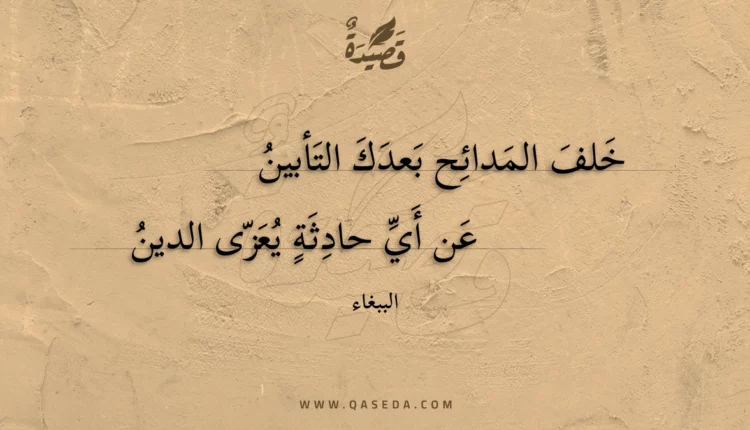 قَصِيدَةٌ
خَلفَ المَدائِح بَعدَكَ التَأبينُ
عَن أَيِّ حادِثَةٍ يُعَزّى الدينُ
الببغاء
WWW.QASEDA.COM